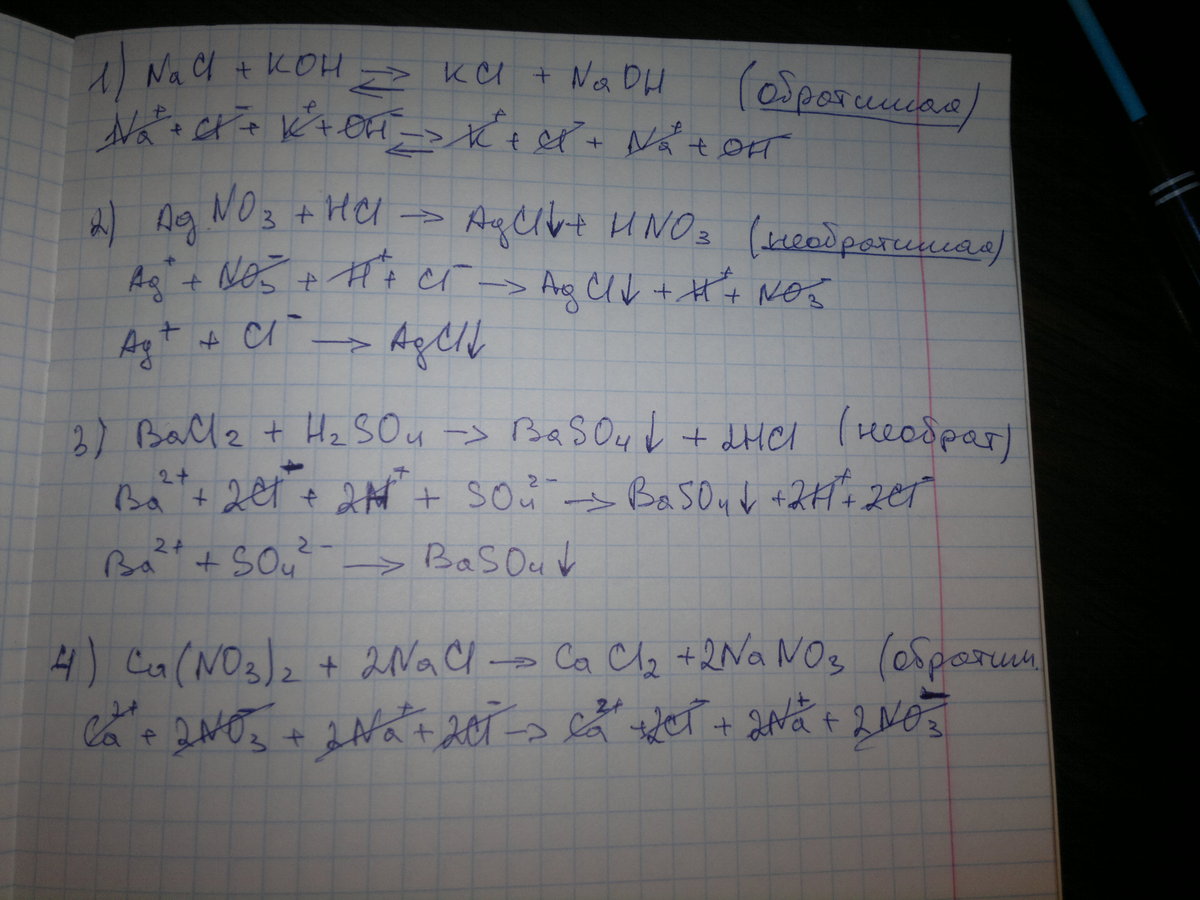 1) NaCl + KOH ⇌ KCl + NaOH (обратимая)
Na⁺ + Cl⁻ + K⁺ + OH⁻ ⇌ K⁺ + Cl⁻ + Na⁺ + OH⁻
2) AgNO₃ + HCl → AgCl↓ + HNO₃ (необратимая)
Ag⁺ + NO₃⁻ + H⁺ + Cl⁻ → AgCl↓ + H⁺ + NO₃⁻
Ag⁺ + Cl⁻ → AgCl↓
3) BaCl₂ + H₂SO₄ → BaSO₄↓ + 2HCl (необрат)
Ba²⁺ + 2Cl⁻ + 2H⁺ + SO₄²⁻ → BaSO₄↓ + 2H⁺ + 2Cl⁻
Ba²⁺ + SO₄²⁻ → BaSO₄↓
4) Ca(NO₃)₂ + 2NaCl → CaCl₂ + 2NaNO₃ (обратим.
Ca²⁺ + 2NO₃⁻ + 2Na⁺ + 2Cl⁻ → Ca²⁺ + 2Cl⁻ + 2Na⁺ + 2NO₃⁻